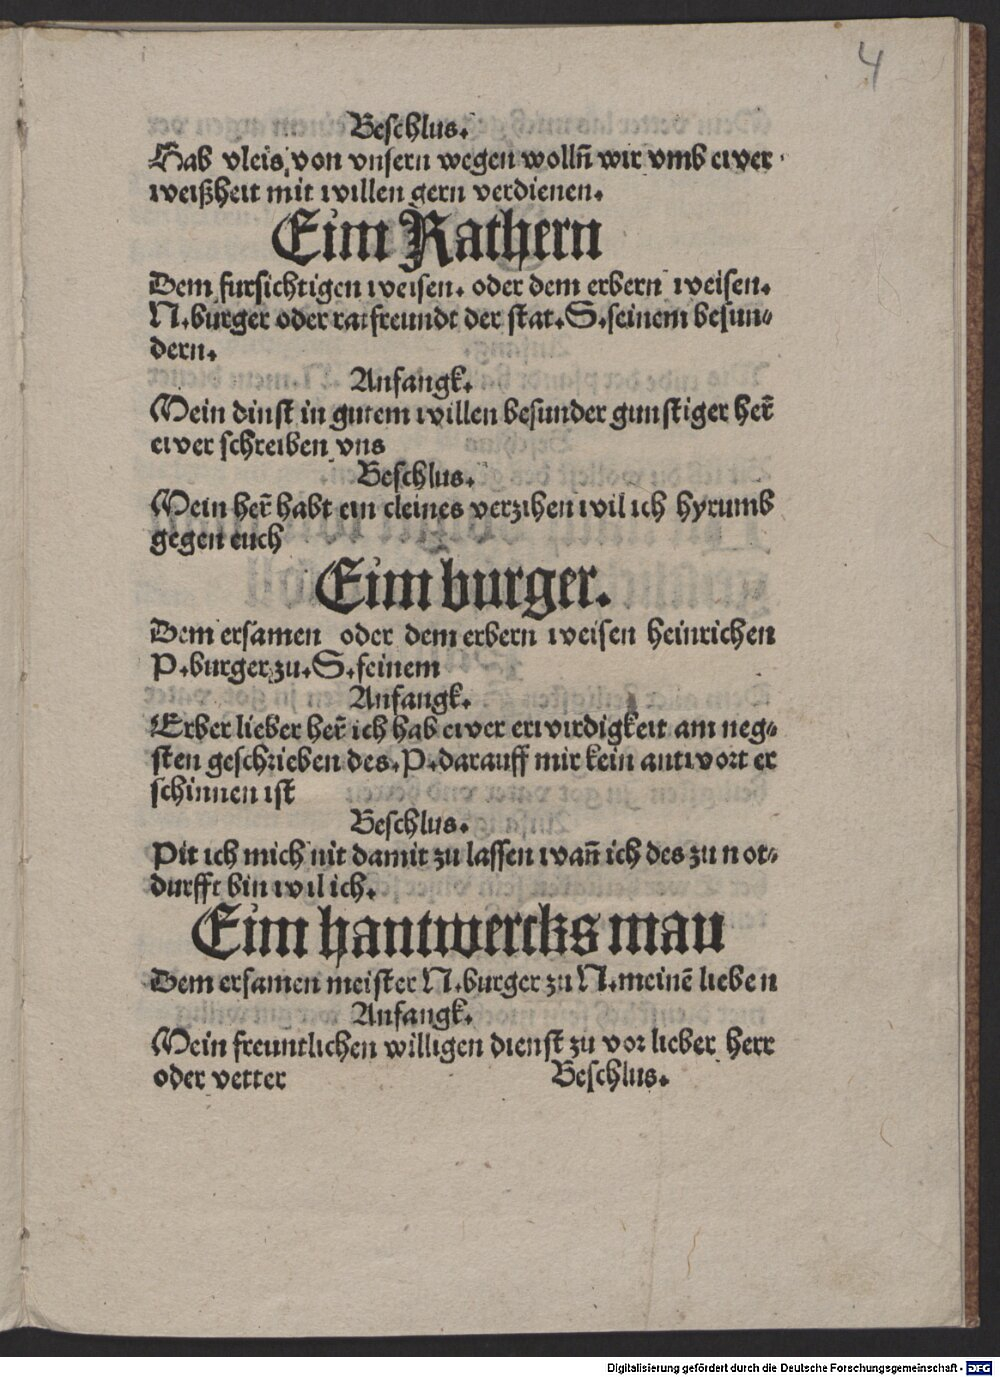 4
Beschlus.
Hab vleis von vnsern wegen wolln̄ wir vmb ewer
weißheit mit willen gern verdienen.
Eim Rathern
Dem fursichtigen weisen. oder dem erbern weisen.
N. burger oder ratfreundt der stat. S. seinem besun⸗
dern.
Anfangk.
Mein dinst in gutem willen besunder gunstiger her̄
ewer schreiben vns
Beschlus.
Mein her̄ habt ein cleines verzihen wil ich hyrumb
gegen euch
Eim burger.
Dem ersamen oder dem erbern weisen heinrichen
P. burger zu. S. seinem
Anfangk.
Erber lieber her̄ ich hab ewer erwirdigkeit am neg⸗
sten geschrieben des. P. darauff mir kein antwort er
schinnen ist
Beschlus.
Pit ich mich nit damit zu lassen wan̄ ich des zu not⸗
durfft bin wil ich.
Eim hantwercks mau
Dem ersamen meister N. burger zu N. meinē lieben
Anfangk.
Mein freuntlichen willigen dienst zu vor lieber herr
oder vetter Beschlus.
Digitalisierung gefördert durch die Deutsche Forschungsgemeinschaft - DFG